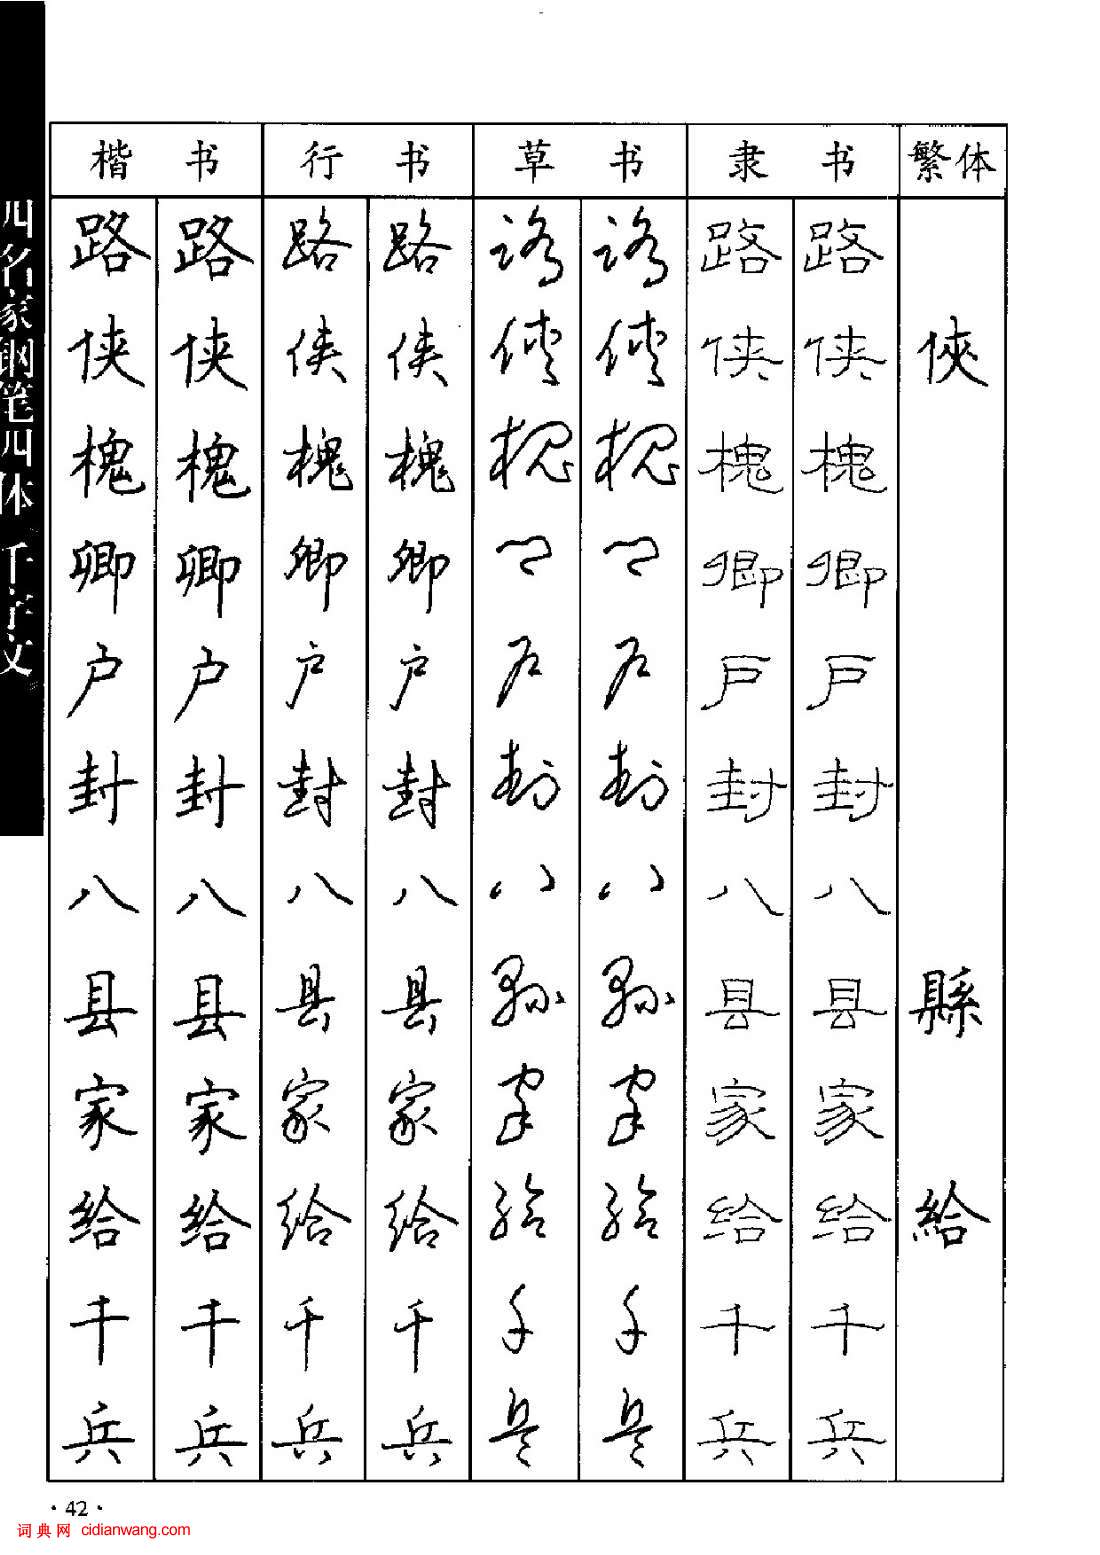 四名家钢笔四体千字文
楷书 行书 草书 隶书 繁体
路 路 路 路 路 路 路 路
侠 侠 侠 侠 侠 侠 侠 侠 俠
槐 槐 槐 槐 槐 槐 槐 槐
卿 卿 卿 卿 卿 卿 卿 卿
户 户 户 户 户 户 户 户
封 封 封 封 封 封 封 封
八 八 八 八 八 八 八 八
县 县 县 县 县 县 县 县 縣
家 家 家 家 家 家 家 家
给 给 给 给 给 给 给 给 給
千 千 千 千 千 千 千 千
兵 兵 兵 兵 兵 兵 兵 兵
·42·
词典网 cidianwang.com